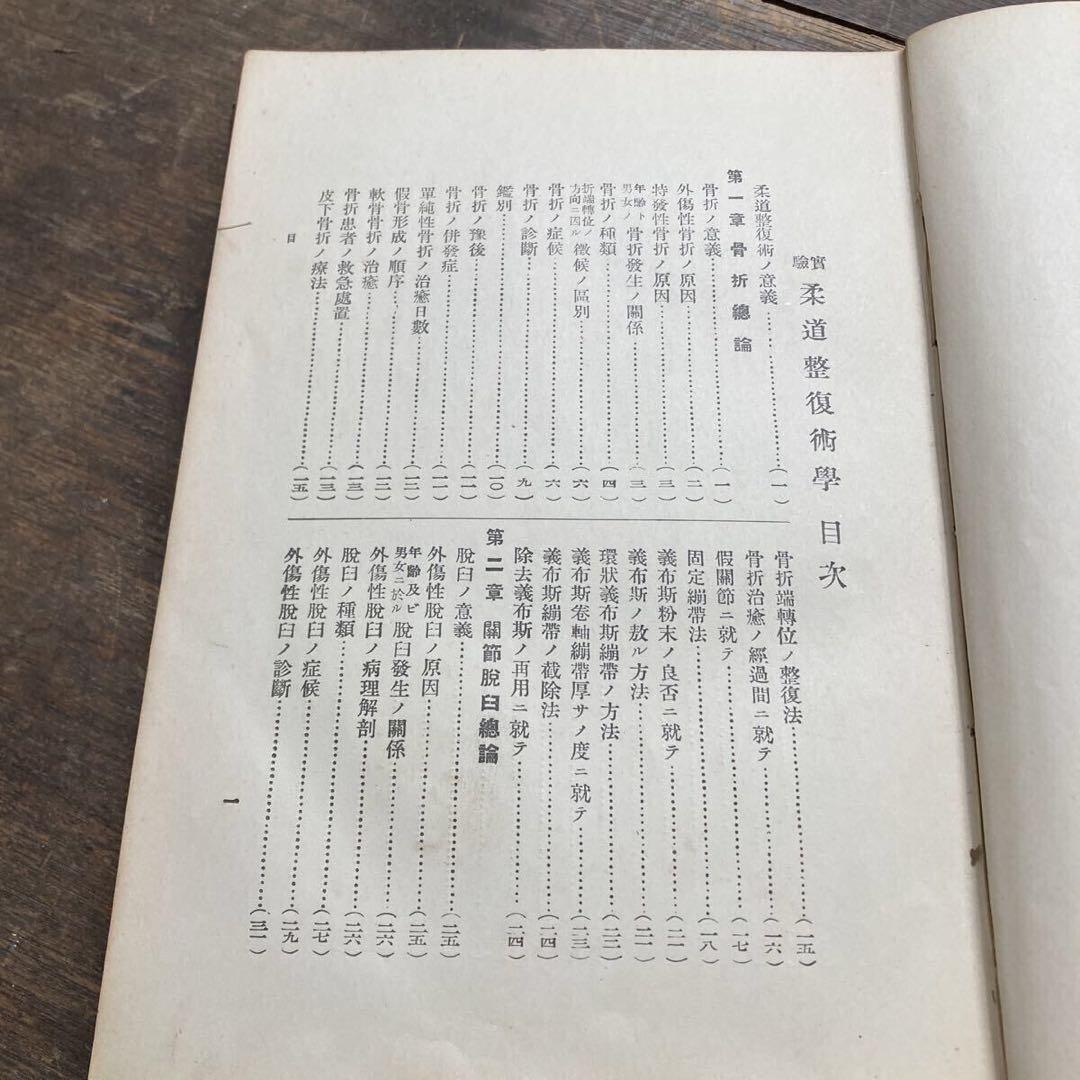 實驗 柔道整復術學 目次
柔道整復術ノ意義…(一)
第一章 骨折總論
骨折ノ意義…(一)
外傷性骨折ノ原因…(二)
特發性骨折ノ原因…(三)
年齡ト男女ノ骨折發生ノ關係…(三)
骨折ノ種類…(四)
折端轉位ノ方向ニ因ル徴候ノ區別…(六)
骨折ノ症候…(六)
骨折ノ診斷…(九)
鑑別…(一〇)
骨折ノ豫後…(一一)
骨折ノ併發症…(一一)
單純性骨折ノ治癒日數…(一二)
假骨形成ノ順序…(一二)
軟骨骨折ノ治癒…(一三)
骨折患者ノ救急處置…(一三)
皮下骨折ノ療法…(一五)
骨折端轉位ノ整復法…(一五)
骨折治癒ノ經過間ニ就テ…(一六)
假關節ニ就テ…(一七)
固定繃帶法…(一八)
義布斯粉末ノ良否ニ就テ…(二一)
義布斯ノ敖ル方法…(二一)
環狀義布斯繃帶ノ方法…(二二)
義布斯卷軸繃帶厚サノ度ニ就テ…(二三)
義布斯繃帶ノ截除法…(二四)
除去義布斯ノ再用ニ就テ…(二四)
第二章 關節脫臼總論
脫臼ノ意義…(二五)
外傷性脫臼ノ原因…(二五)
年齡及ビ男女ニ於ル脫臼發生ノ關係…(二六)
外傷性脫臼ノ病理解剖…(二六)
脫臼ノ種類…(二六)
外傷性脫臼ノ症候…(二七)
外傷性脫臼ノ診斷…(三一)
目
一